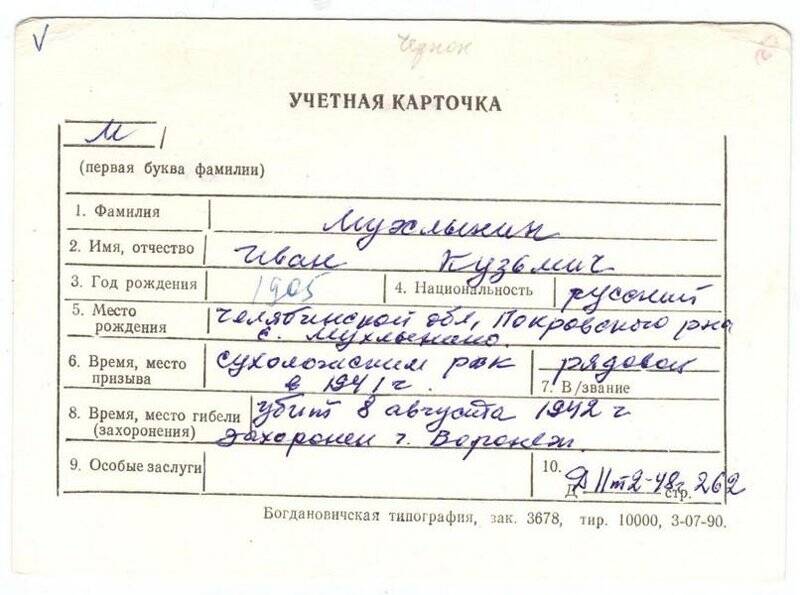 V
УЧЕТНАЯ КАРТОЧКА
М
(первая буква фамилии)
1. Фамилия Мухлынин
2. Имя, отчество Иван Кузьмич
3. Год рождения 1905 4. Национальность русский
5. Место рождения Челябинской обл, Покровского р-на
с. Мухлынино.
6. Время, место призыва сухоложским рвк
в 1941 г.
рядовой
7. В/звание
8. Время, место гибели (захоронения) убит 8 августа 1942 г
захоронен г. Воронеж.
9. Особые заслуги
10. Д II т2-48г стр. 262
Богдановичская типография, зак. 3678, тир. 10000, 3-07-90.